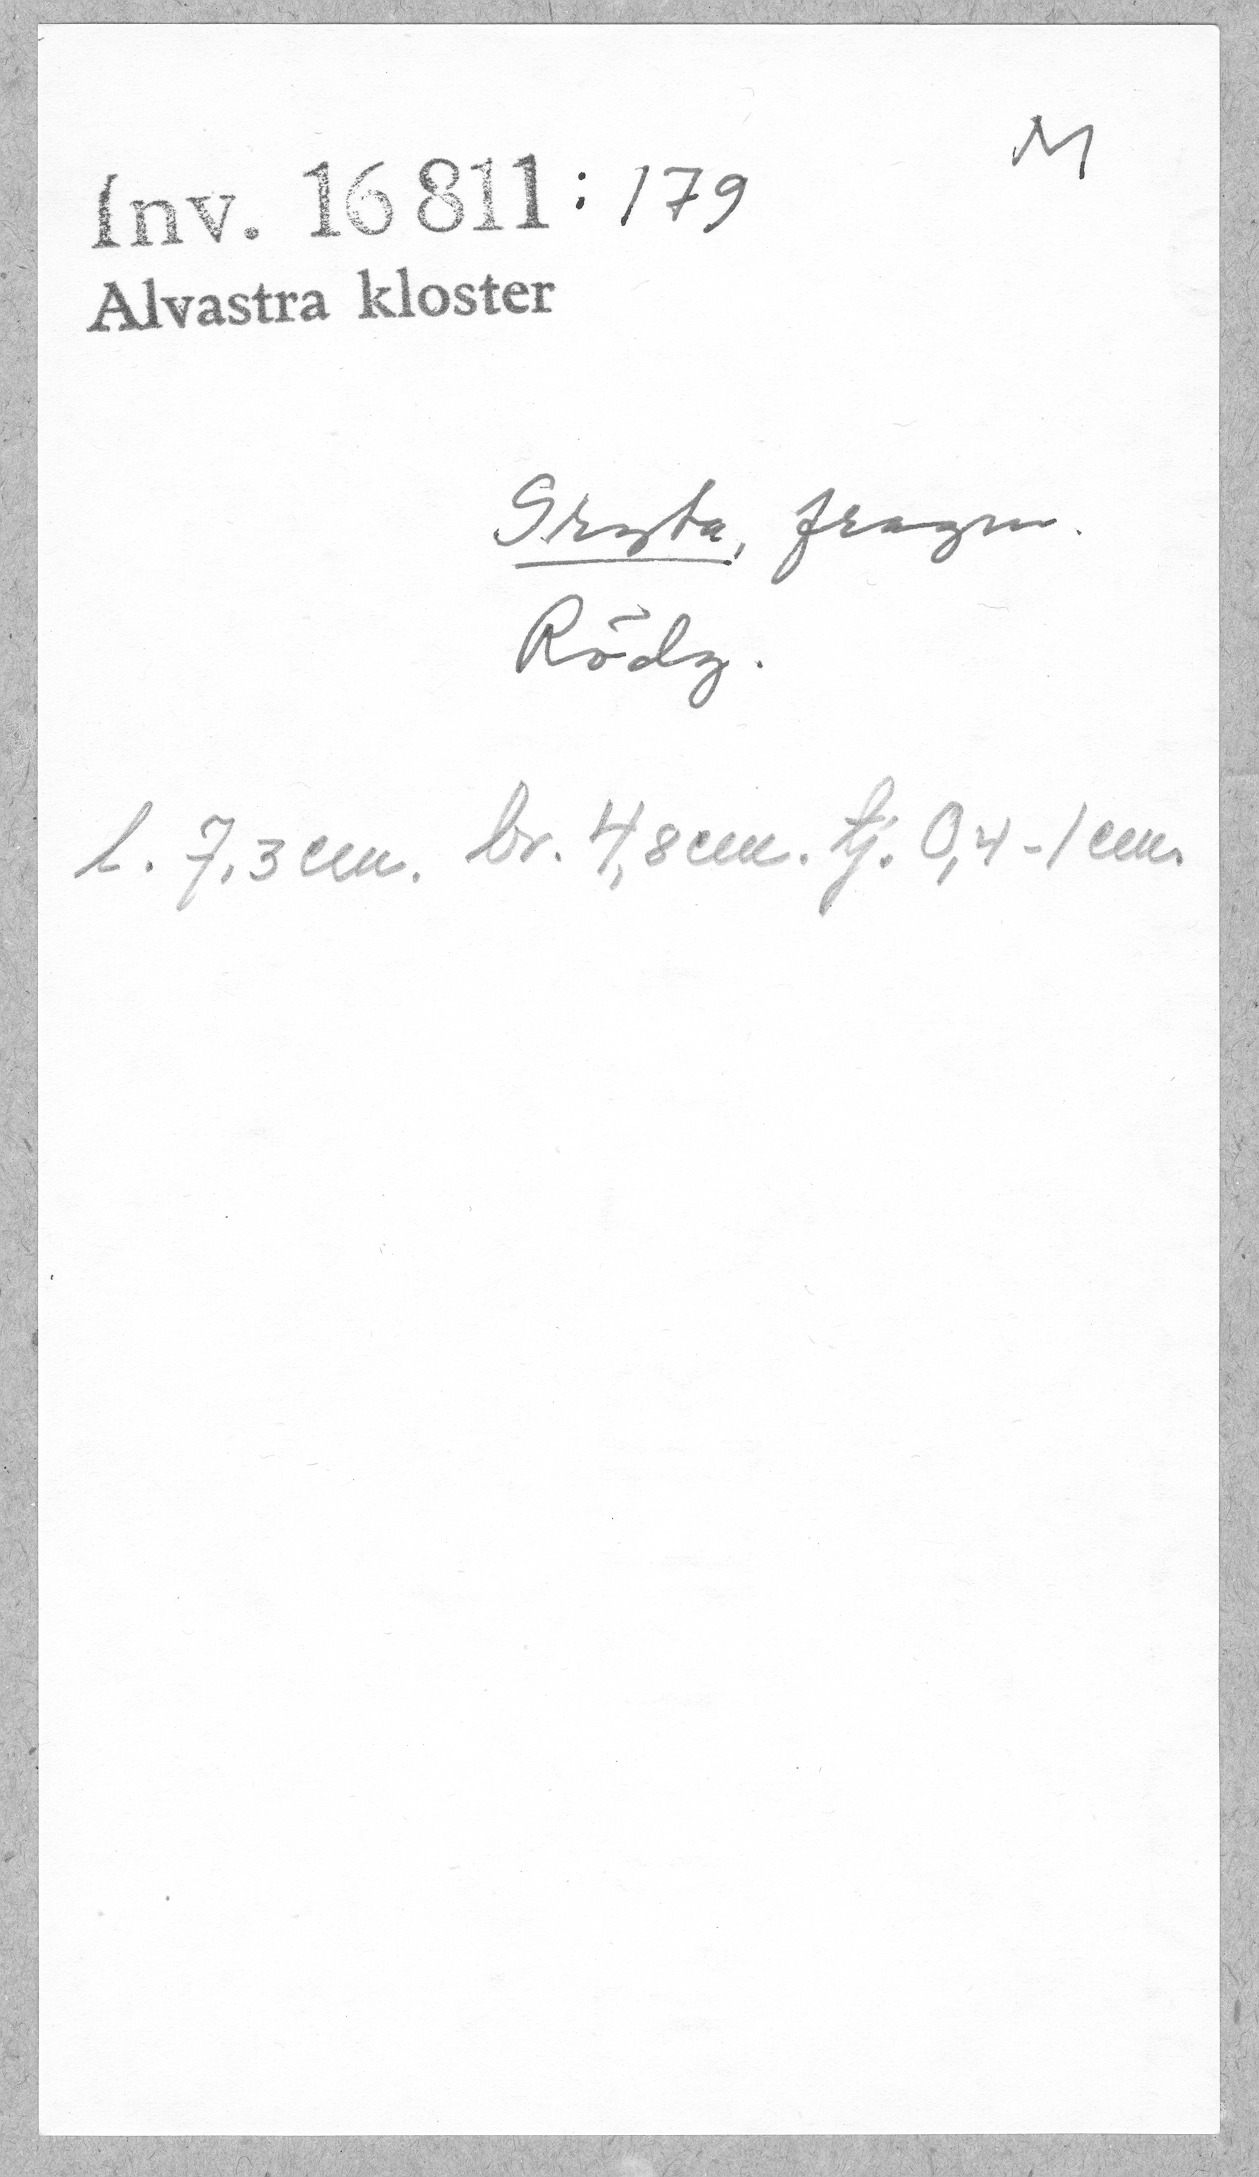 M
Inv. 16811 : 179
Alvastra kloster
Gryta, fragm.
Rödg.
l. 7,3 cm. br. 4,8 cm. tj. 0,4-1 cm.